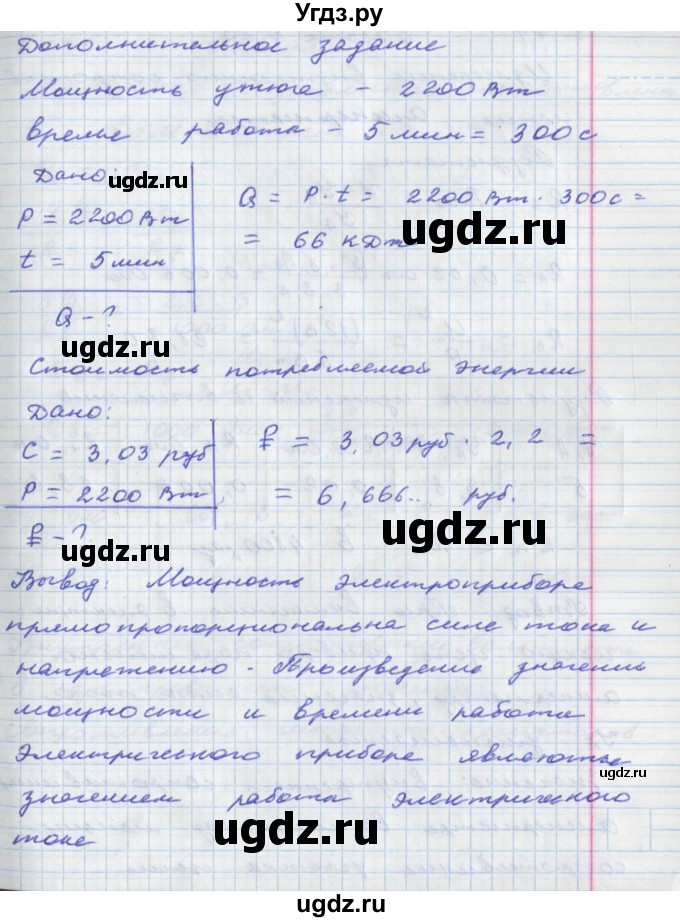 Угдз.ру
Дополнительное задание
Мощность утюга - 2200 Вт
время работы - 5 мин = 300 с
Дано:
P = 2200 Вт
t = 5 мин
Q - ?
Q = P · t = 2200 Вт · 300 с =
= 66 кДж
Стоимость потребляемой энергии
Дано:
C = 3,03 руб
P = 2200 Вт
₽ - ?
₽ = 3,03 руб · 2,2 =
= 6,666.. руб.
Вывод: Мощность электроприбора
прямо пропорциональна силе тока и
напряжению. Произведение значений
мощности и времени работы
электрического прибора являются
значением работы электрического
тока
ugdz.ru
ugdz.ru
ugdz.ru
ugdz.ru
ugdz.ru
ugdz.ru
ugdz.ru
ugdz.ru
ugdz.ru
ugdz.ru